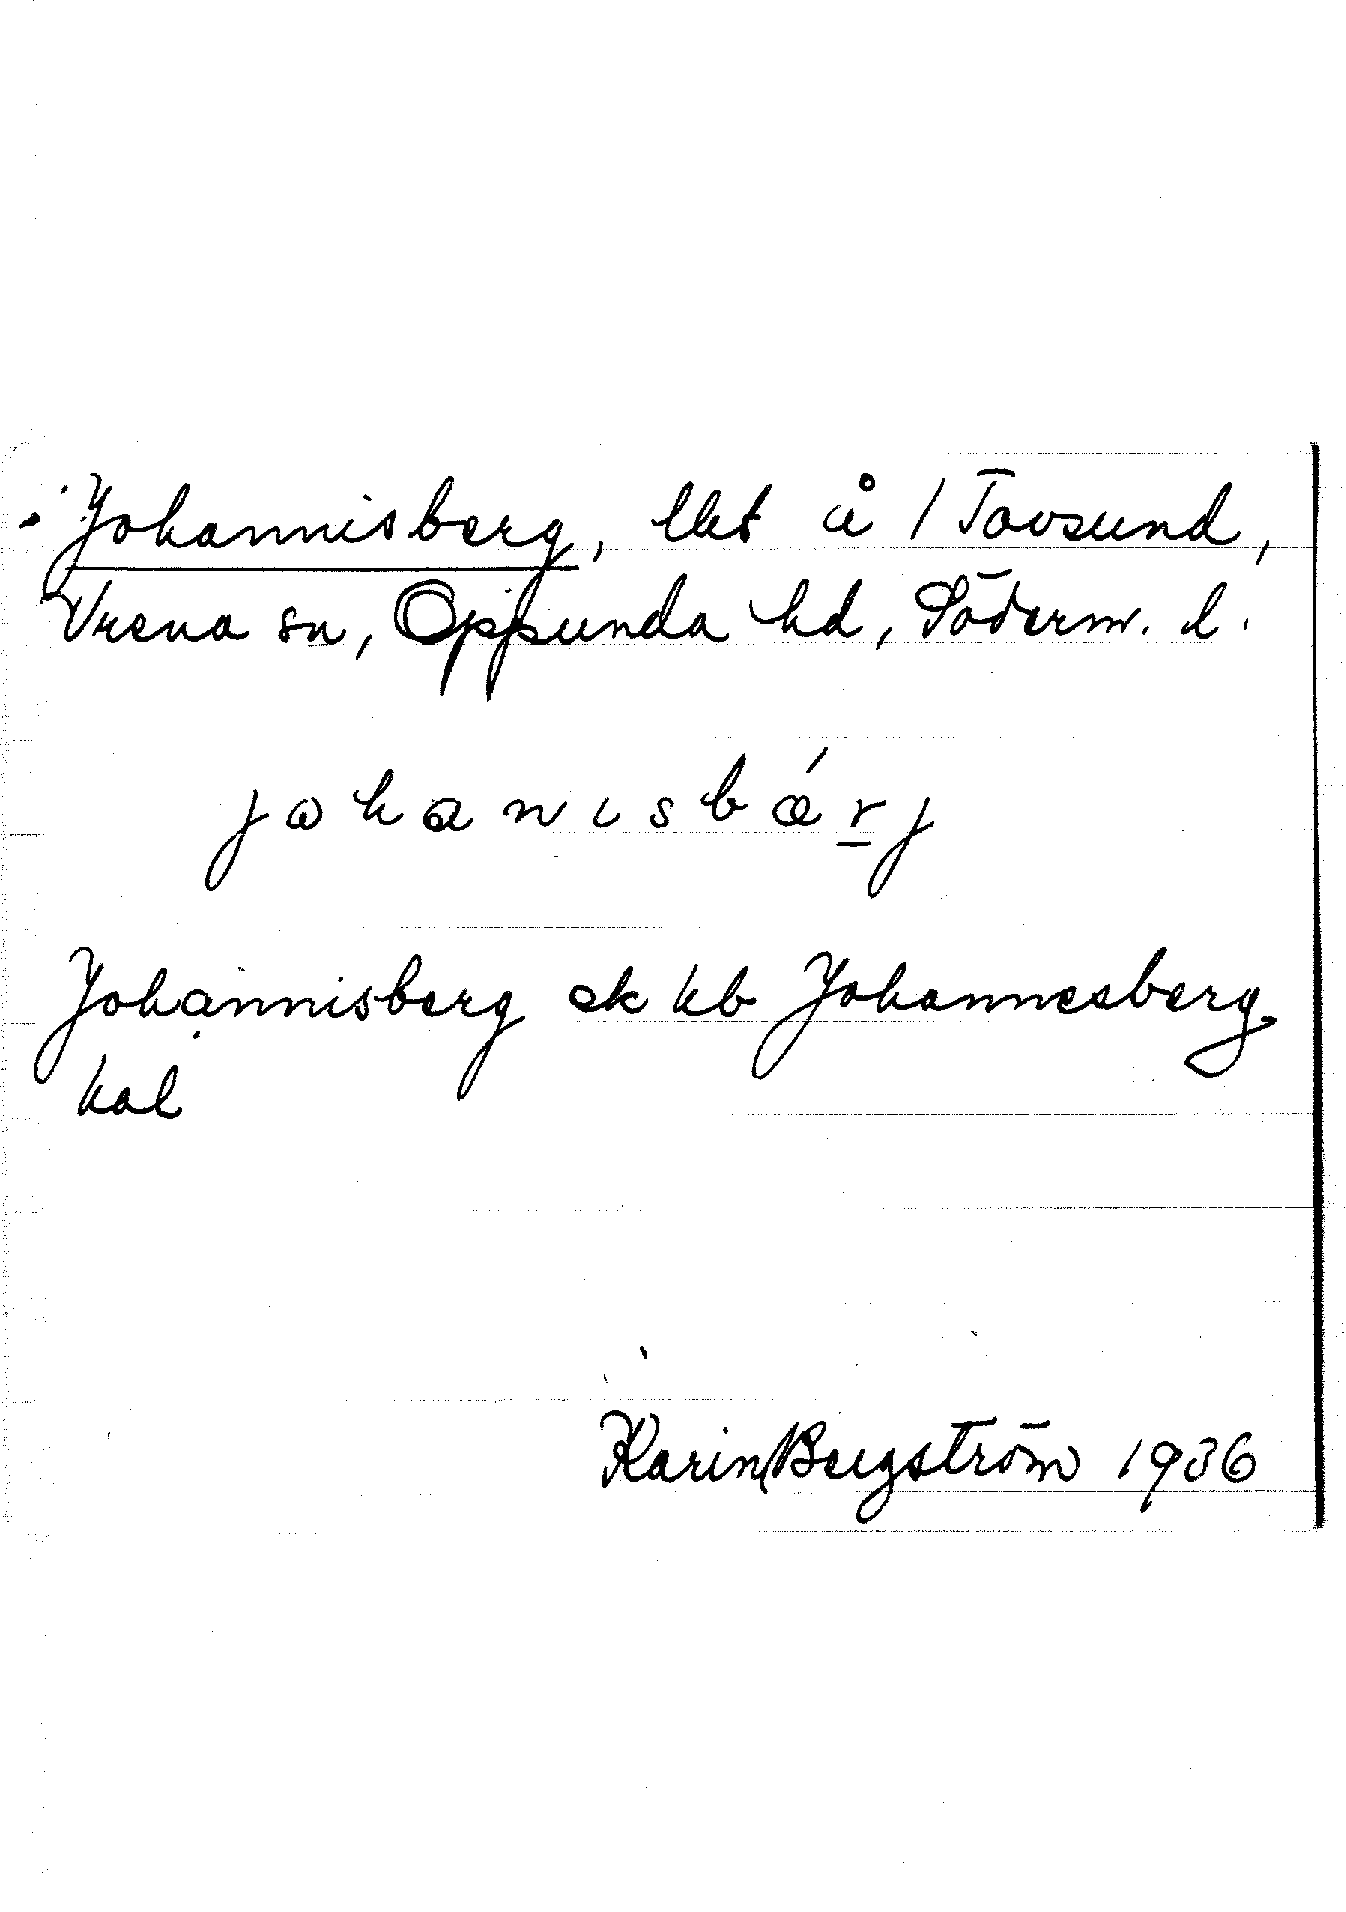 Johannisberg, lht å 1 Tovsund,
Vrena sn, Oppunda hd, Söderm. l.
johanisbǽrj
Johannisberg ek hb Johannesberg
kal
Karin Bergström 1936